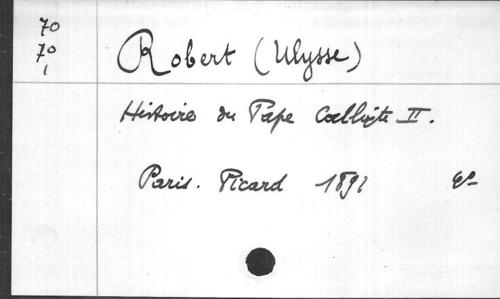 70
70
1
Robert (Ulysse)
Histoire du Pape Callixte II.
Paris. Picard 1891 8°